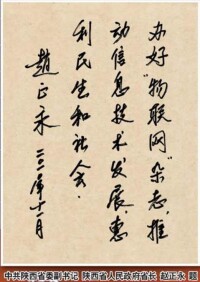 办好“物联网”杂志，推
动信息技术发展，惠
利民生和社会．
赵正永
二〇一〇年十一月
中共陕西省委副书记 陕西省人民政府省长 赵正永 题